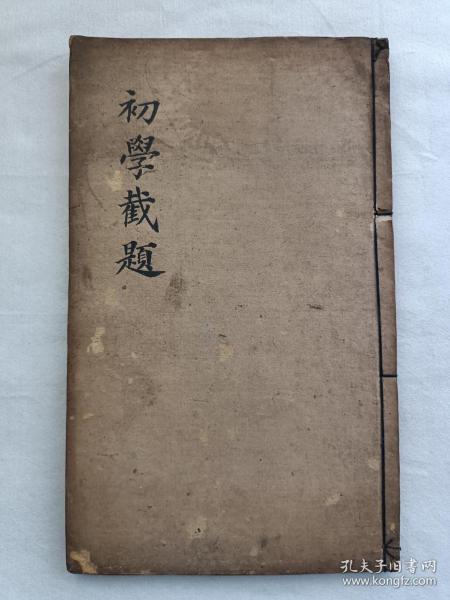 初學截題
孔夫子旧书网
www.kongfz.com